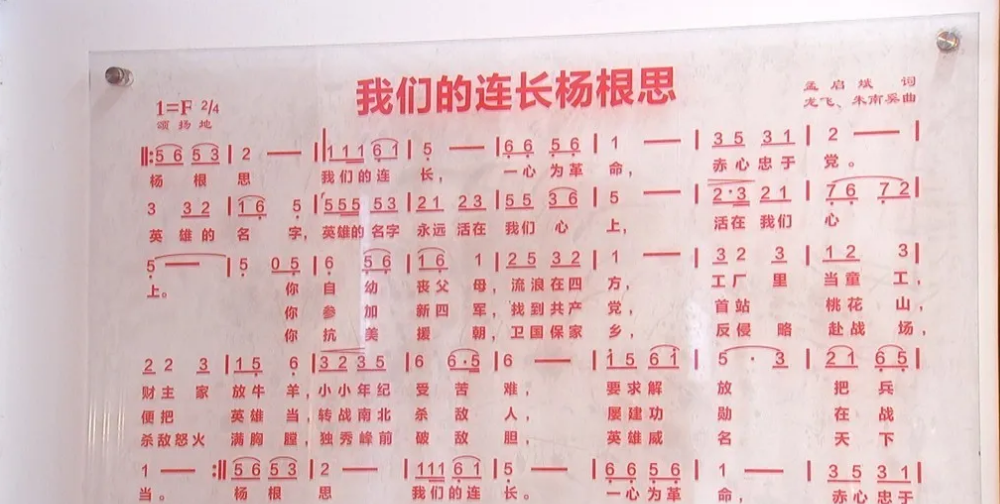 我们的连长杨根思
1=F 2/4
颂扬地
孟启斌 词
龙飞、朱南溪曲
‖:56 53 | 2 — ‖ 111 61 | 5 — | 66 56 | 1 — | 35 31 | 2 — |
杨 根 思 我们的连 长, 一心为革 命, 赤心忠于 党。
3 32 | 16 5 | 555 53 | 21 23 | 55 36 | 5 — | 2·3 21 | 76 72 |
英雄的名 字, 英雄的名字 永远活在 我们心 上, 活在我们 心
5 — | 5 05 | 6 56 | 16 1 | 25 32 | 1 — | 32 3 | 12 3 |
上。 你 自幼 丧父母, 流浪在四 方, 工厂里 当童工,
你 参加 新四军, 找到共产 党, 首站 桃花山,
你 抗美 援朝, 卫国保家 乡, 反侵略 赴战场,
22 3 | 15 6 | 32 35 | 6 6·5 | 6 — | 15 61 | 5 · 3 | 21 65 |
财主家 放牛羊, 小小年纪 受苦 难, 要求解 放 把兵
便把 英雄当, 转战南北 杀敌 人, 屡建功 勋 在战
杀敌怒火 满胸膛, 独秀峰前 破敌 胆, 英雄威 名 天下
1 — :‖ 56 53 | 2 — | 111 61 | 5 — | 66 56 | 1 — | 35 31 |
当。 杨 根 思 我们的连 长。 一心为革 命, 赤心忠于